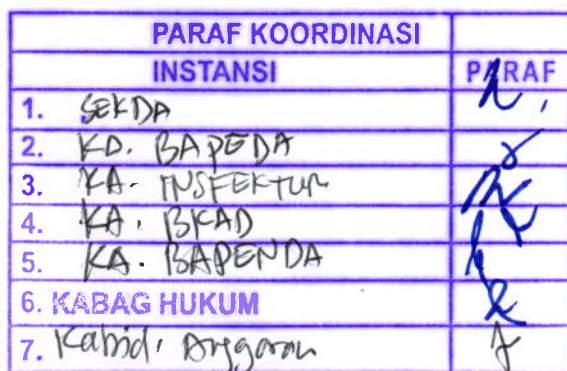 PARAF KOORDINASI
INSTANSI PARAF
1. SEKDA
2. KD. BAPEDA
3. KA. INSFEKTUR
4. KA. BKAD
5. KA. BAPENDA
6. KABAG HUKUM
7. Kabid. Anggaran